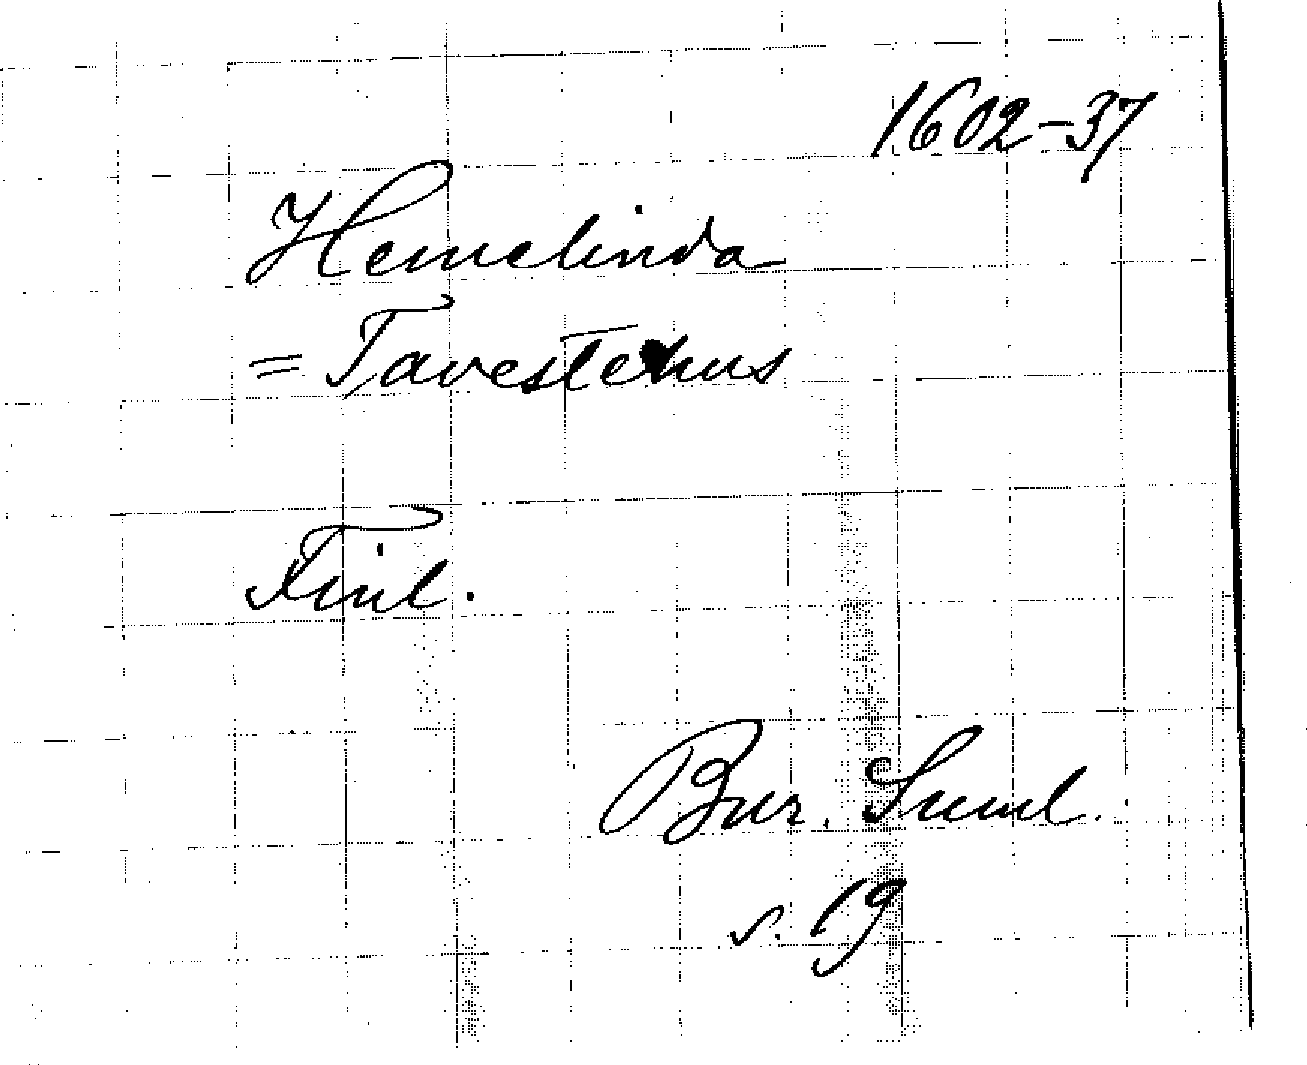 1602-37
Hemelinda
= Tavestehus
Finl.
Bur. Suml.
s. 19